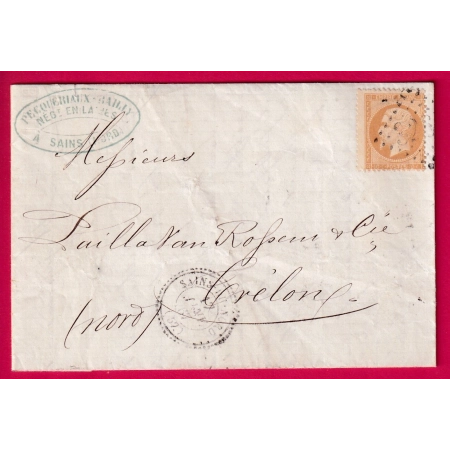 PECQUERIAUX-BAILLY
NÉGT EN LAINES
A SAINS (NORD)
Messieurs
Pailla Van Rossem & Cie
Trélon
(nord)
SAINS